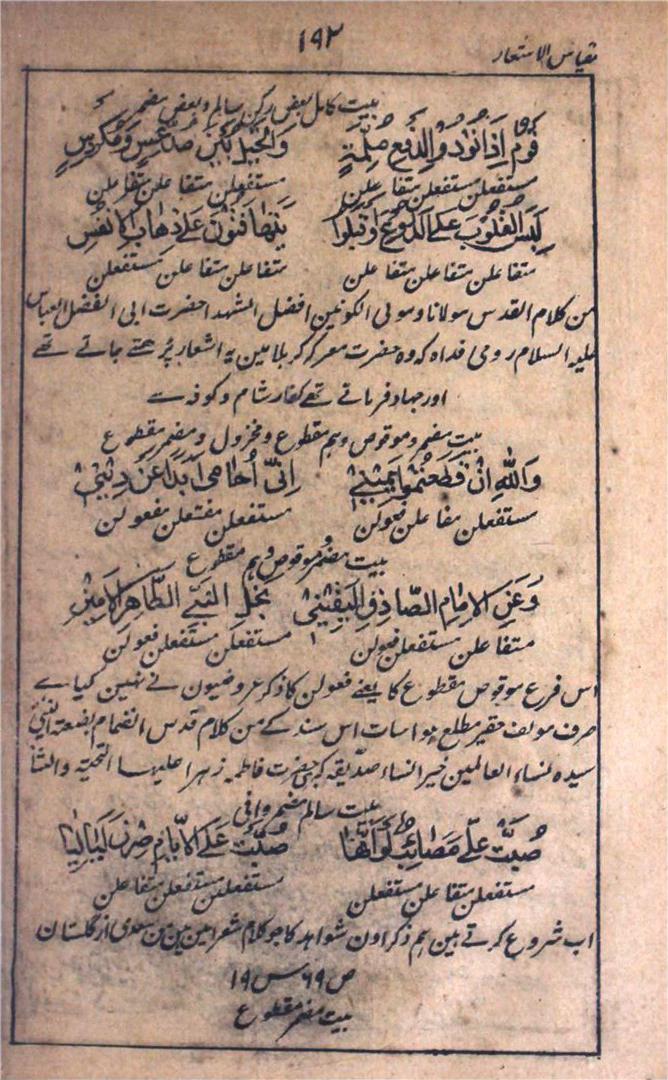 مقیاس الاشعار ۱۹۲
بیت کامل بعض رکن سالم و بعض مضمر
قَوْمٌ اِذَا نُودُوْا لِدَفْعِ مُلِمَّةٍ وَالْخَيْلُ بَيْنَ مُدَعَّسٍ وَمُكَرْدَسٍ
مستفعلن مستفعلن متفاعلن مستفعلن متفاعلن متفاعلن
لَبِسُ الْقُلُوْبَ عَلَى الدُّرُوْعِ وَاَقْبَلُوْا يَتَهَافَتُوْنَ عَلٰى ذِهَابِ الْاَنْفُسِ
متفاعلن متفاعلن متفاعلن متفاعلن متفاعلن مستفعلن
من کلام القدس مولانا و مولی الکونین افضل الشهدا حضرت ابی الفضل العباس
علیه السلام روحی فداه که وه حضرت معرکه کربلا مین یه اشعار پڑھتے جاتے تھے
اور جهاد فرماتے تھے کفار شام و کوفه سے
بیت مضمر و موقوص و هم مقطوع و مخزول و مضمر مقطوع
وَاللّٰهِ اِنْ قَطَعْتُمُوْا يَمِيْنِيْ اِنِّيْ اُحَامِيْ اَبَدًا عَنْ دِيْنِيْ
مستفعلن مفاعلن فعولن مستفعلن مفتعلن مفعولن
بیت مضمر و موقوص و هم مقطوع
وَعَنِ الْاِمَامِ الصَّادِقِ الْيَقِيْنِيْ نَجْلِ النَّبِيِّ الطَّاهِرِ الْاَمِيْنِ
متفاعلن مستفعلن فعولن مستفعلن مستفعلن فعولن
اس فرع موقوص مقطوع کا یعنے فعولن کا ذکر عروضیون نے نهین کیا هے
صرف مولف حقیر مطلع هوا سات اس سند کے من کلام قدس انضمام بضعة النبی
سیده نساء العالمین خیر النساء صدیقه کبری حضرت فاطمه زهرا علیها التحیة والثنا
بیت سالم مضمر وافی
صُبَّتْ عَلَيَّ مَصَائِبُ لَوْ اَنَّهَا صُبَّتْ عَلَى الْاَيَّامِ صِرْنَ لَيَالِيَا
مستفعلن متفاعلن مستفعلن مستفعلن مستفعلن متفاعلن
اب شروع کرتے هین هم ذکر اون شواهد کا جو کلام شعرا مین هین سعدی از گلستان
ص ۶۹ س ۱۹
بیت مضمر مقطوع